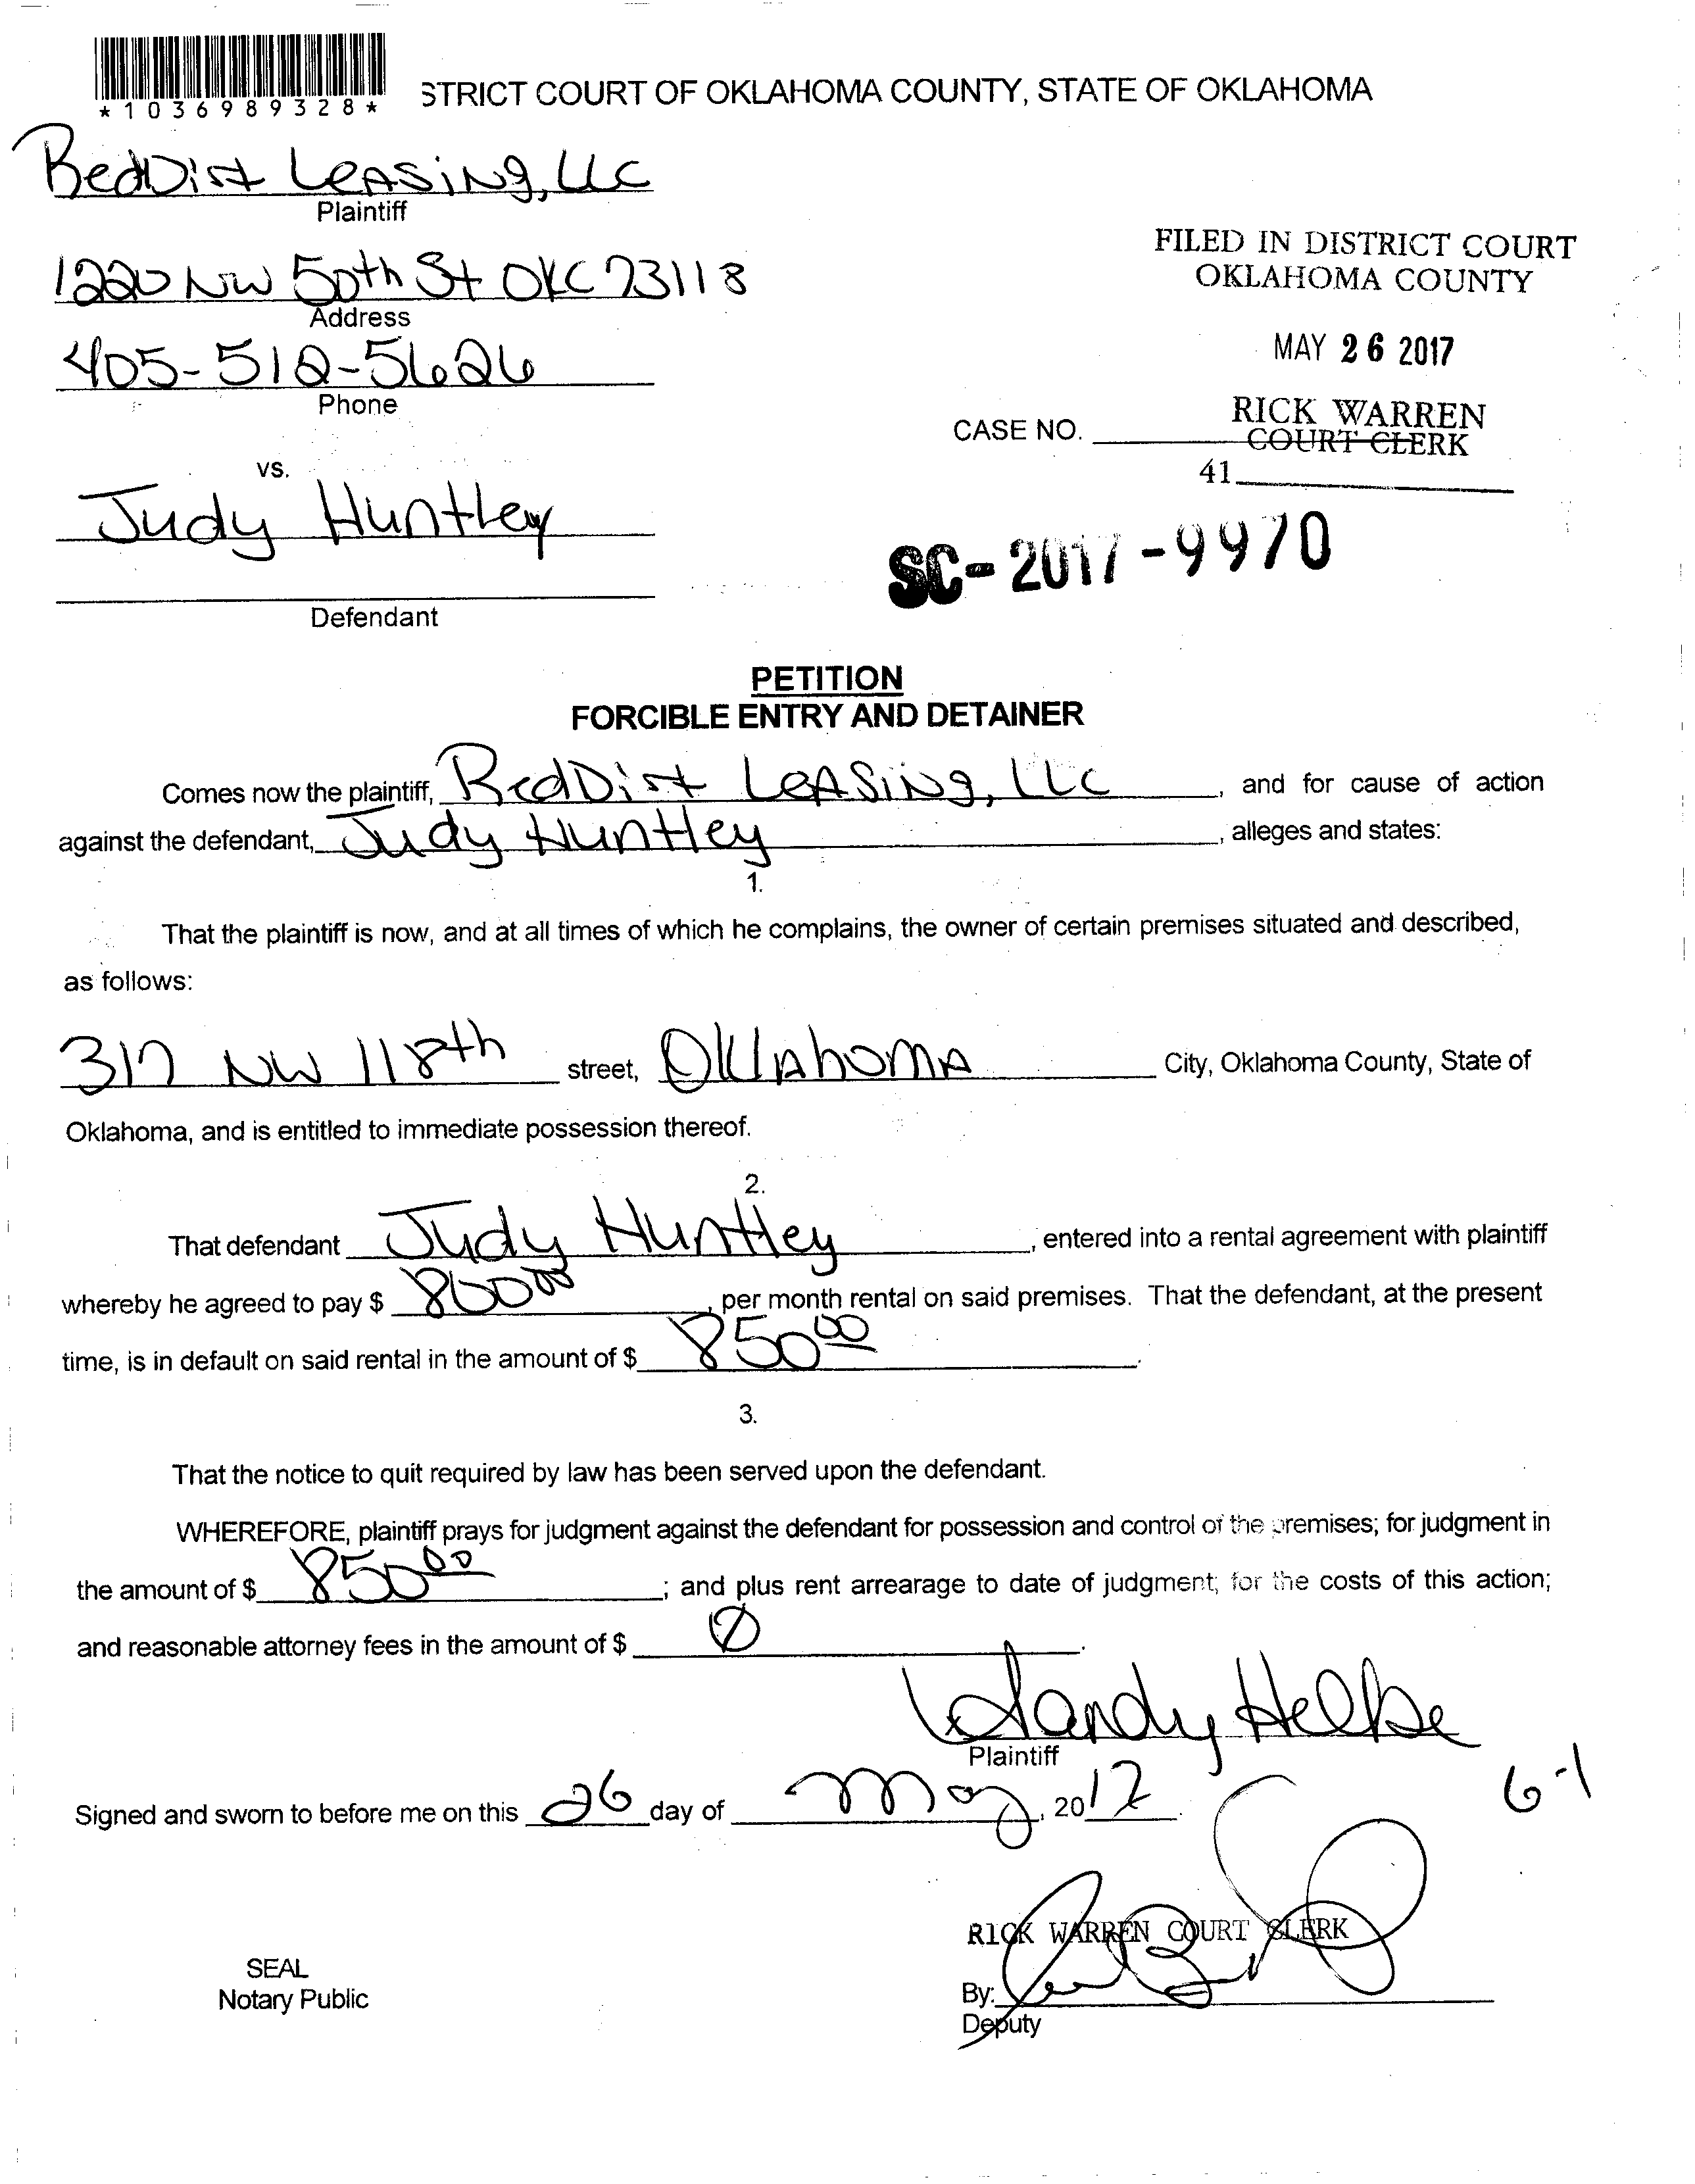 *1036989328*
STRICT COURT OF OKLAHOMA COUNTY, STATE OF OKLAHOMA
RedDirt Leasing, LLC
Plaintiff
1220 NW 50th St OKC 73118
Address
405-512-5626
Phone
FILED IN DISTRICT COURT
OKLAHOMA COUNTY
MAY 26 2017
RICK WARREN
COURT CLERK
CASE NO.
41
vs.
Judy Huntley
SC-2017-9970
Defendant
PETITION
FORCIBLE ENTRY AND DETAINER
Comes now the plaintiff, RedDirt Leasing, LLC, and for cause of action
against the defendant, Judy Huntley, alleges and states:
1.
That the plaintiff is now, and at all times of which he complains, the owner of certain premises situated and described,
as follows:
317 NW 118th street, Oklahoma City, Oklahoma County, State of
Oklahoma, and is entitled to immediate possession thereof.
2.
That defendant Judy Huntley, entered into a rental agreement with plaintiff
whereby he agreed to pay $ 800 00, per month rental on said premises. That the defendant, at the present
time, is in default on said rental in the amount of $ 850 00.
3.
That the notice to quit required by law has been served upon the defendant.
WHEREFORE, plaintiff prays for judgment against the defendant for possession and control of the premises; for judgment in
the amount of $ 850 00; and plus rent arrearage to date of judgment; for the costs of this action;
and reasonable attorney fees in the amount of $ 0.
Sandy
Plaintiff
6-1
Signed and sworn to before me on this 26 day of May, 2017.
RICK WARREN COURT CLERK
SEAL
Notary Public
By:
Deputy